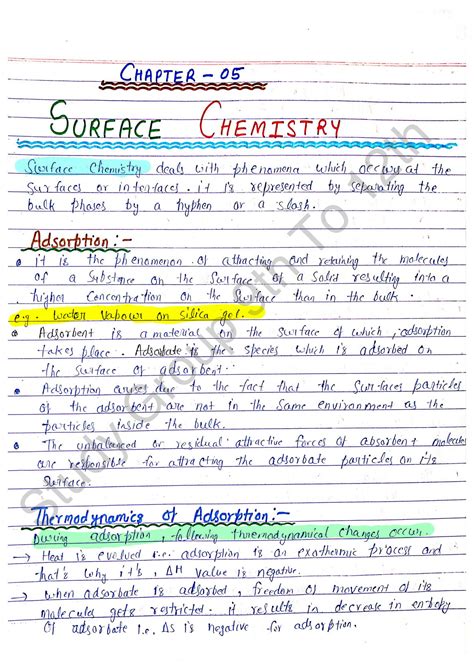 CHAPTER - 05
SURFACE CHEMISTRY
Surface Chemistry deals with phenomena which occurs at the
surfaces or interfaces. it is represented by separating the
bulk phases by a hyphen or a slash.
Adsorption:-
• it is the phenomenon of attracting and retaining the molecules
of a substance on the surface of a solid resulting into a
higher concentration on the surface than in the bulk.
e.g. water vapour on silica gel.
• Adsorbent is a material the surface of which adsorption
takes place. Adsorbate is the species which is adsorbed on
the surface of adsorbent.
• Adsorption arises due to the fact that the surfaces particles
of the adsorbent are not in the same environment as the
particles inside the bulk.
• The unbalanced or residual attractive forces of absorbent molecules
are responsible for attracting the adsorbate particles on its
surface.
Thermodynamics of Adsorption:-
During adsorption, following thermodynamical changes occur.
→ Heat is evolved i.e. adsorption is an exothermic process and
that's why it's, ΔH value is negative.
→ when adsorbate is adsorbed, freedom of movement of its
molecules gets restricted. it results in decrease in entropy
of adsorbate i.e. ΔS is negative for adsorption.
Study Group 9th To 12th